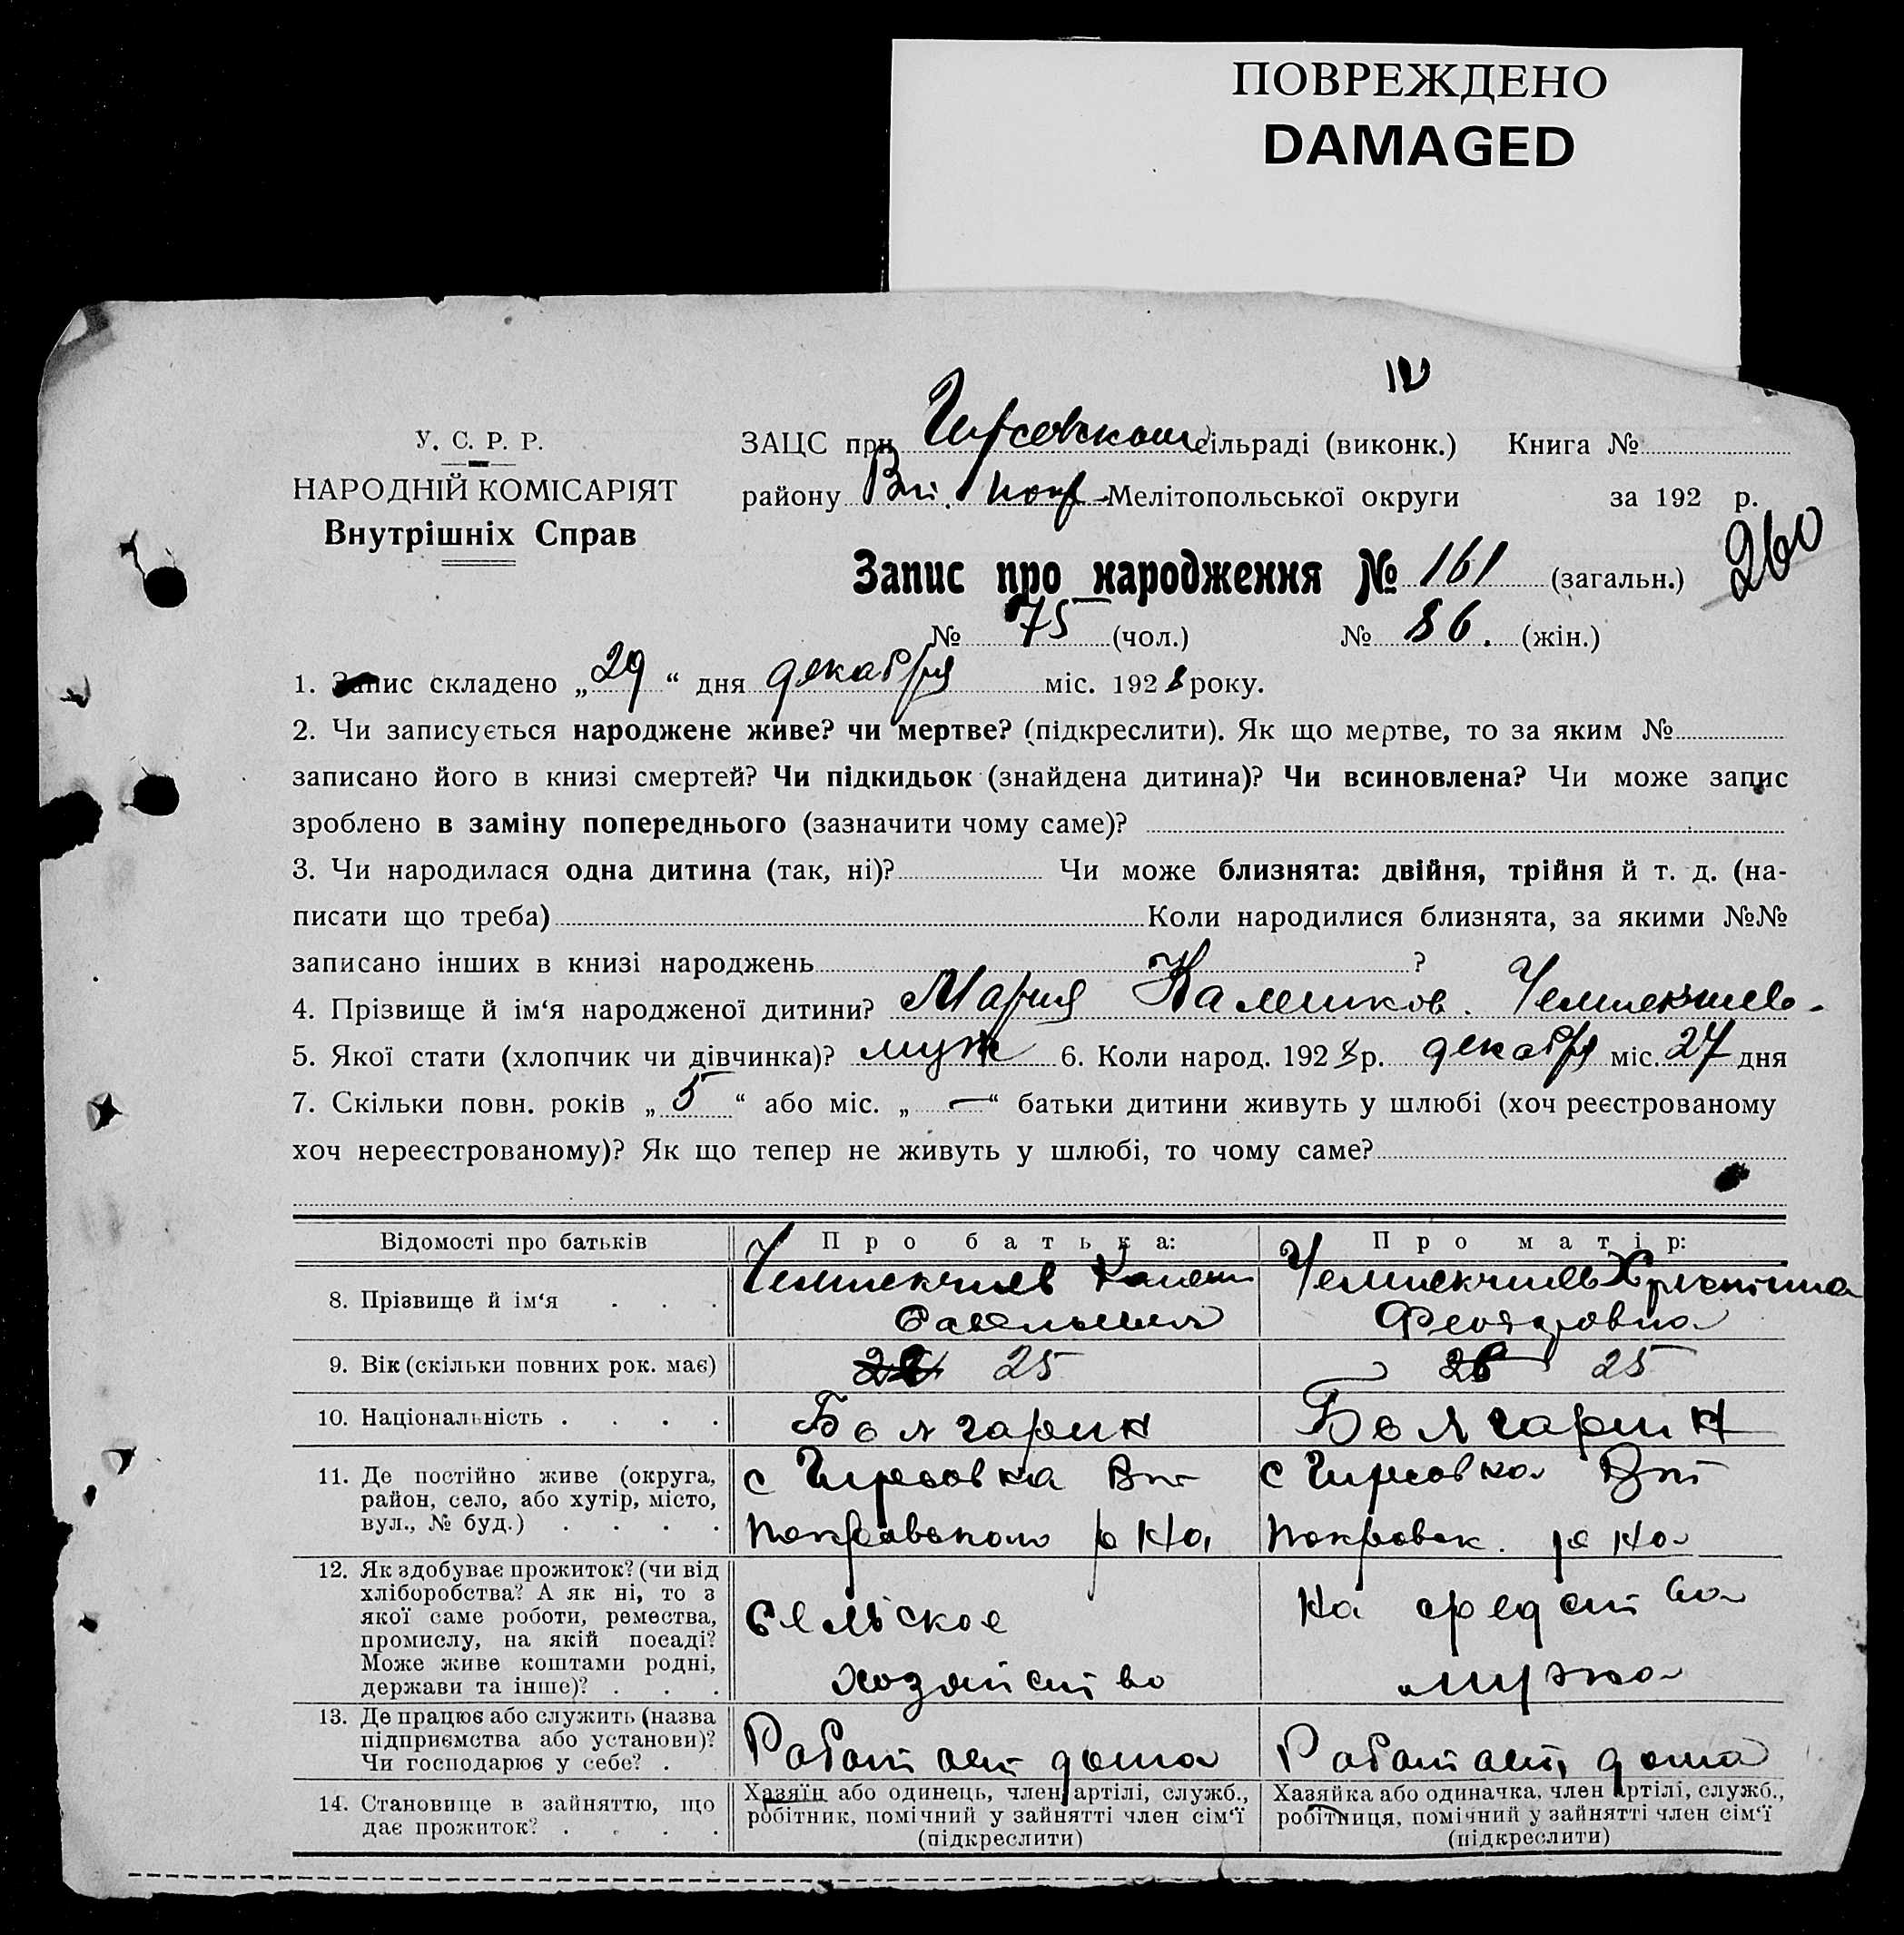 ПОВРЕЖДЕНО
DAMAGED
У. С. Р. Р.
НАРОДНІЙ КОМІСАРІЯТ
Внутрішніх Справ
ЗАЦС при Гирсовском сільраді (виконк.) Книга №
району Вт. Покр Мелітопольської округи за 192 р.
260
Запис про народження № 161 (загальн.)
№ 75 (чол.) № 86. (жін.)
1. Запис складено „29“ дня декабря міс. 1928 року.
2. Чи записується народжене живе? чи мертве? (підкреслити). Як що мертве, то за яким №
записано його в книзі смертей? Чи підкидьок (знайдена дитина)? Чи всиновлена? Чи може запис
зроблено в заміну попереднього (зазначити чому саме)?
3. Чи народилася одна дитина (так, ні)? Чи може близнята: двійня, трійня й т. д. (на-
писати що треба) Коли народилися близнята, за якими №№
записано інших в книзі народжень ?
4. Прізвище й ім‘я народженої дитини? Мария
5. Якої стати (хлопчик чи дівчинка)? муж 6. Коли народ. 1928 р. декабря міс. 27 дня
7. Скільки повн. років „5“ або міс. „—“ батьки дитини живуть у шлюбі (хоч реєстрованому
хоч нереєстрованому)? Як що тепер не живуть у шлюбі, то чому саме?
Відомості про батьків Про батька: Про матір:
8. Прізвище й ім‘я . . .
Христина
Феодоровна
9. Вік (скільки повних рок. має) 25 25
10. Національність . . . . Болгарин Болгарин
11. Де постійно живе (округа,
район, село, або хутір, місто,
вул., № буд.) . . . .
с Гирсовка Вт
Покровского р на
с Гирсовка Вт
Покровск. р на
12. Як здобуває прожиток? (чи від
хліборобства? А як ні, то з
якої саме роботи, ремества,
промислу, на якій посаді?
Може живе коштами родні,
держави та інше)? . . .
Сельское
хозяйство
на средства
мужа
13. Де працює або служить (назва
підприємства або установи)?
Чи господарює у себе? .
Работает дома
Работает дома
14. Становище в зайняттю, що
дає прожиток? . . . .
Хазяїн або одинець, член артілі, служб.,
робітник, помічний у зайнятті член сім‘ї
(підкреслити)
Хазяйка або одиначка, член артілі, служб.,
робітниця, помічний у зайнятті член сім‘ї
(підкреслити)